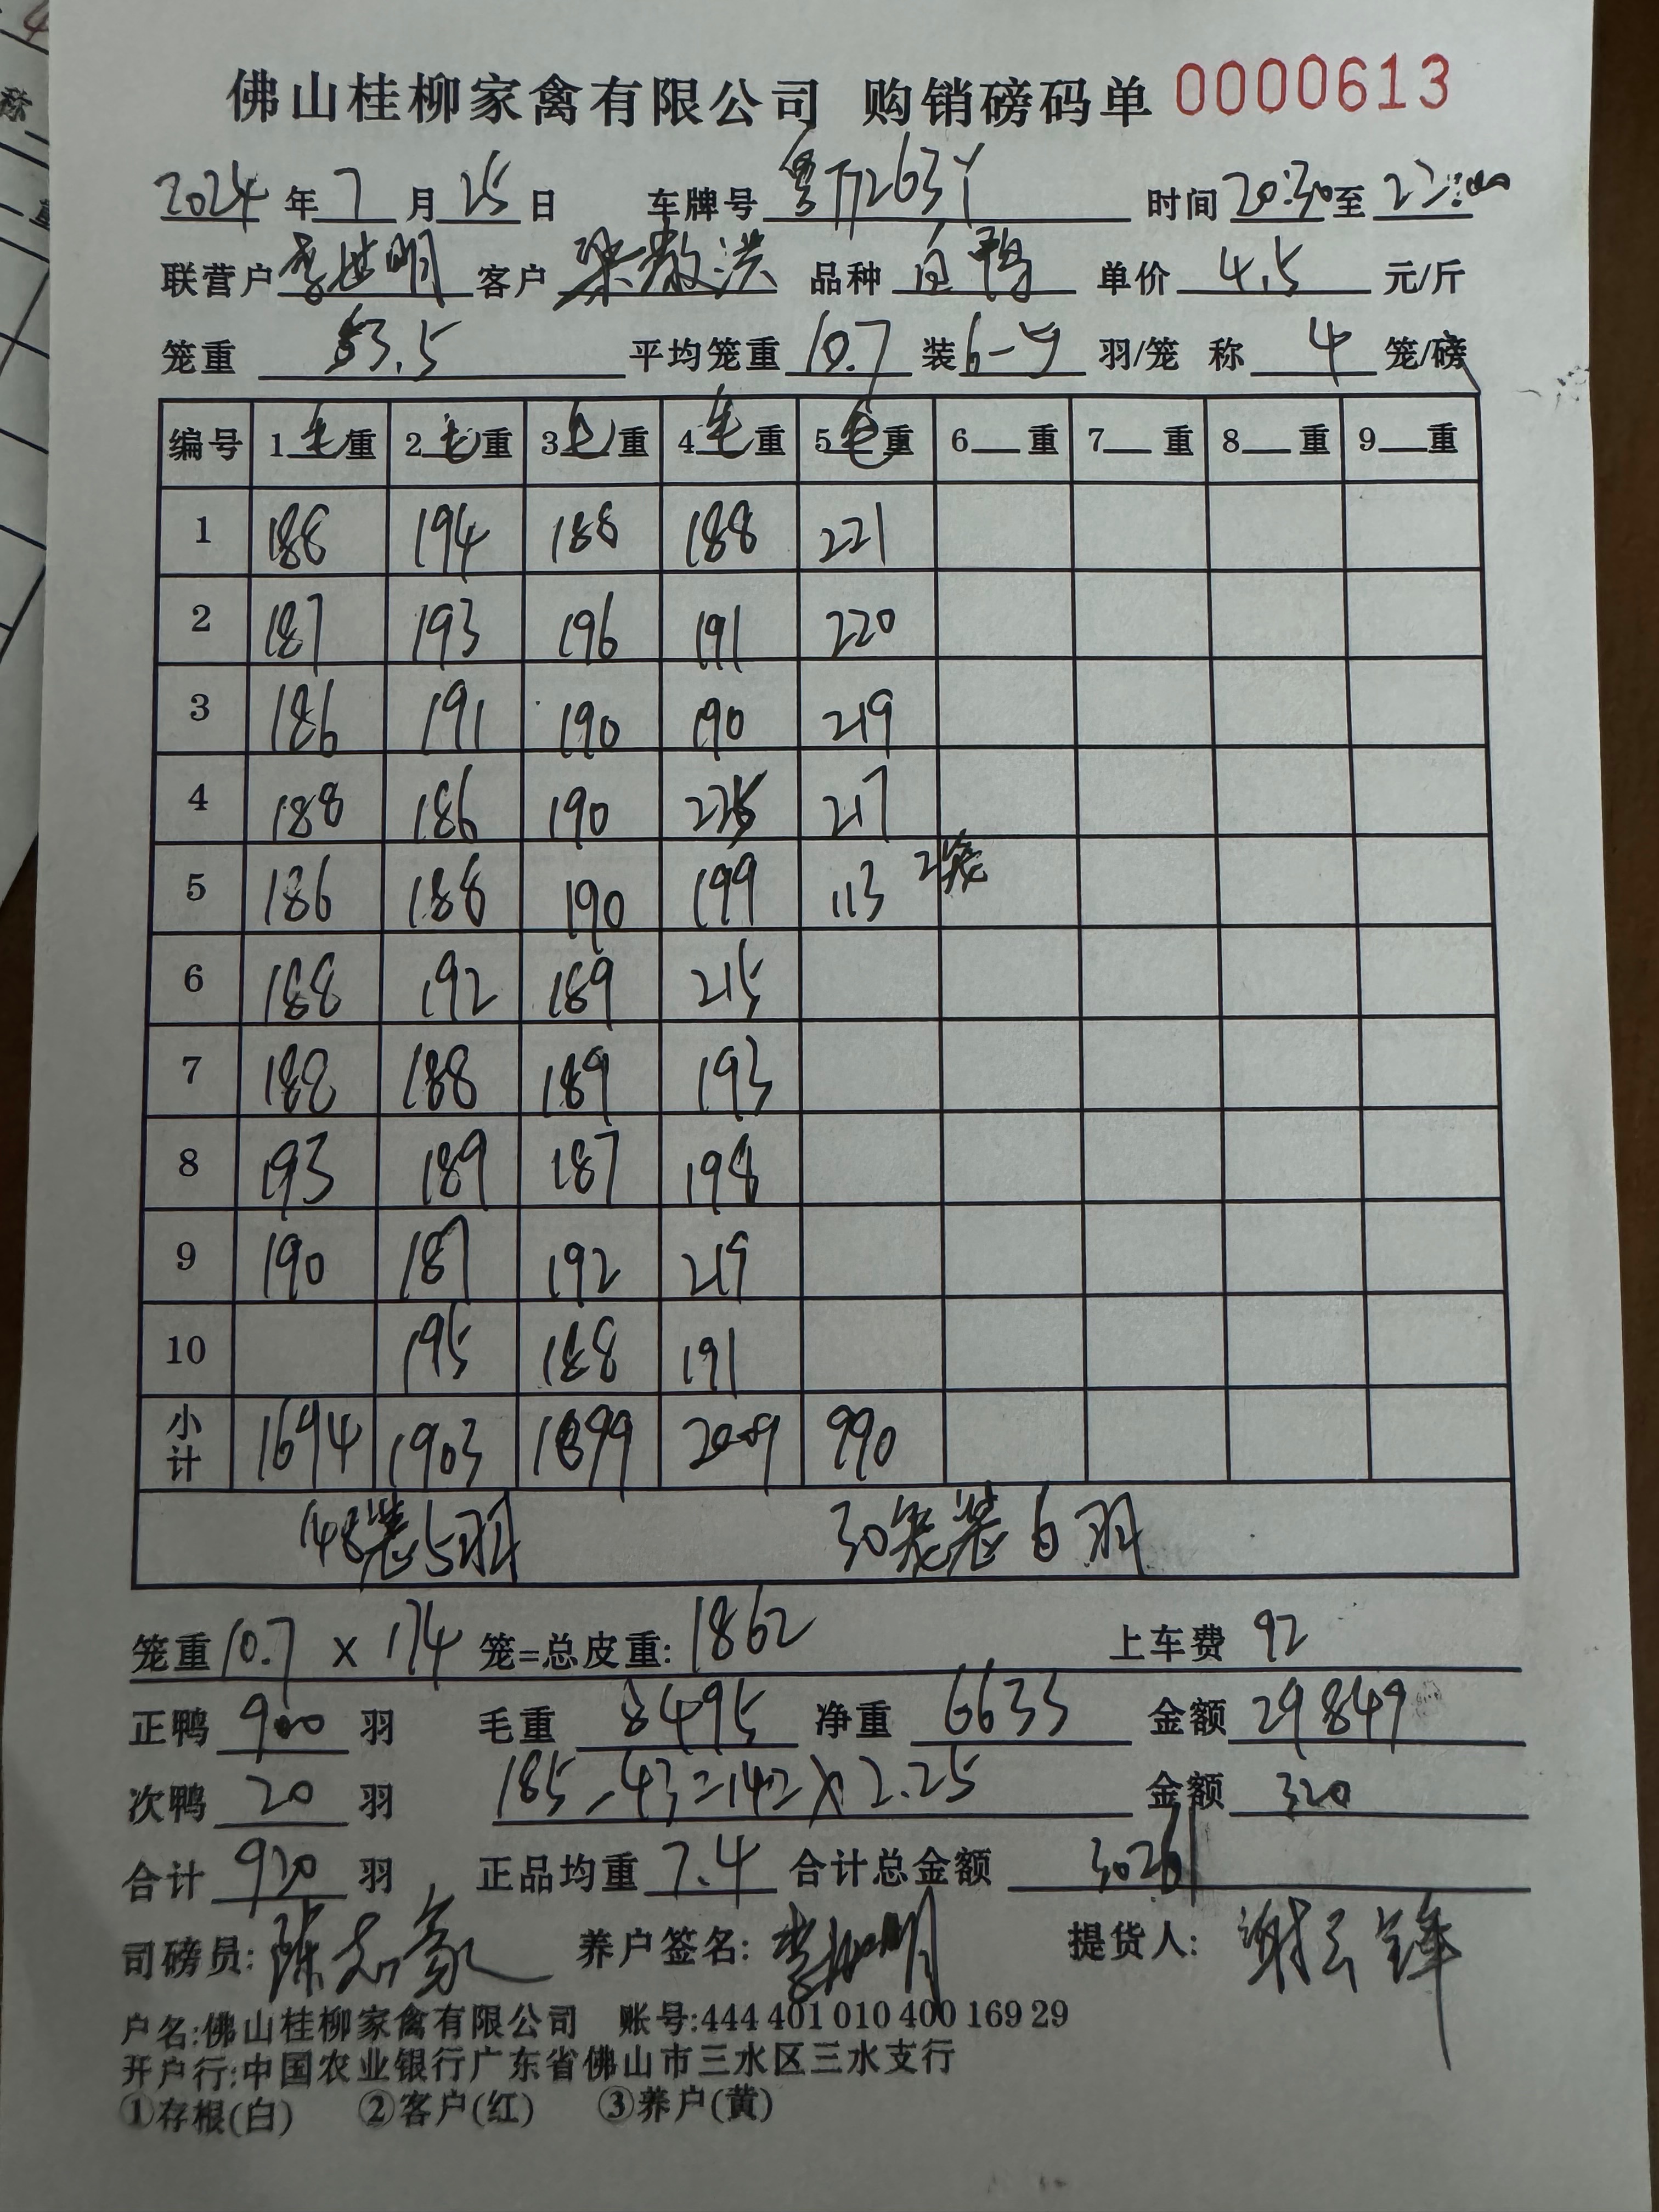 佛山桂柳家禽有限公司 购销磅码单 0000613
2024 年 7 月 25 日 车牌号 时间 20:30 至
联营户 李世明 客户 梁散洪 品种 白鸭 单价 4.5 元/斤
笼重 53.5 平均笼重 10.7 装 6-5 羽/笼 称 4 笼/磅
编号 1 毛 重 2 毛 重 3 毛 重 4 毛 重 5 毛 重 6 重 7 重 8 重 9 重
1 188 194 188 188 221
2 187 193 196 191 220
3 186 191 190 190 219
4 188 186 190 225 217
5 186 188 190 199 113 2笼
6 188 192 189 215
7 188 188 189 193
8 193 189 187 198
9 190 187 192 219
10 195 188 191
小计 1694 1903 1899 2009 990
148装5羽 30笼装6羽
笼重 10.7 x 174 笼=总皮重: 1862 上车费 92
正鸭 900 羽 毛重 8495 净重 6633 金额 29849
次鸭 20 羽 185-43=142x2.25 金额 320
合计 920 羽 正品均重 7.4 合计总金额 30261
司磅员: 陈志豪 养户签名: 提货人: 谢云锋
户名:佛山桂柳家禽有限公司 账号:444 401 010 400 169 29
开户行:中国农业银行广东省佛山市三水区三水支行
①存根(白) ②客户(红) ③养户(黄)